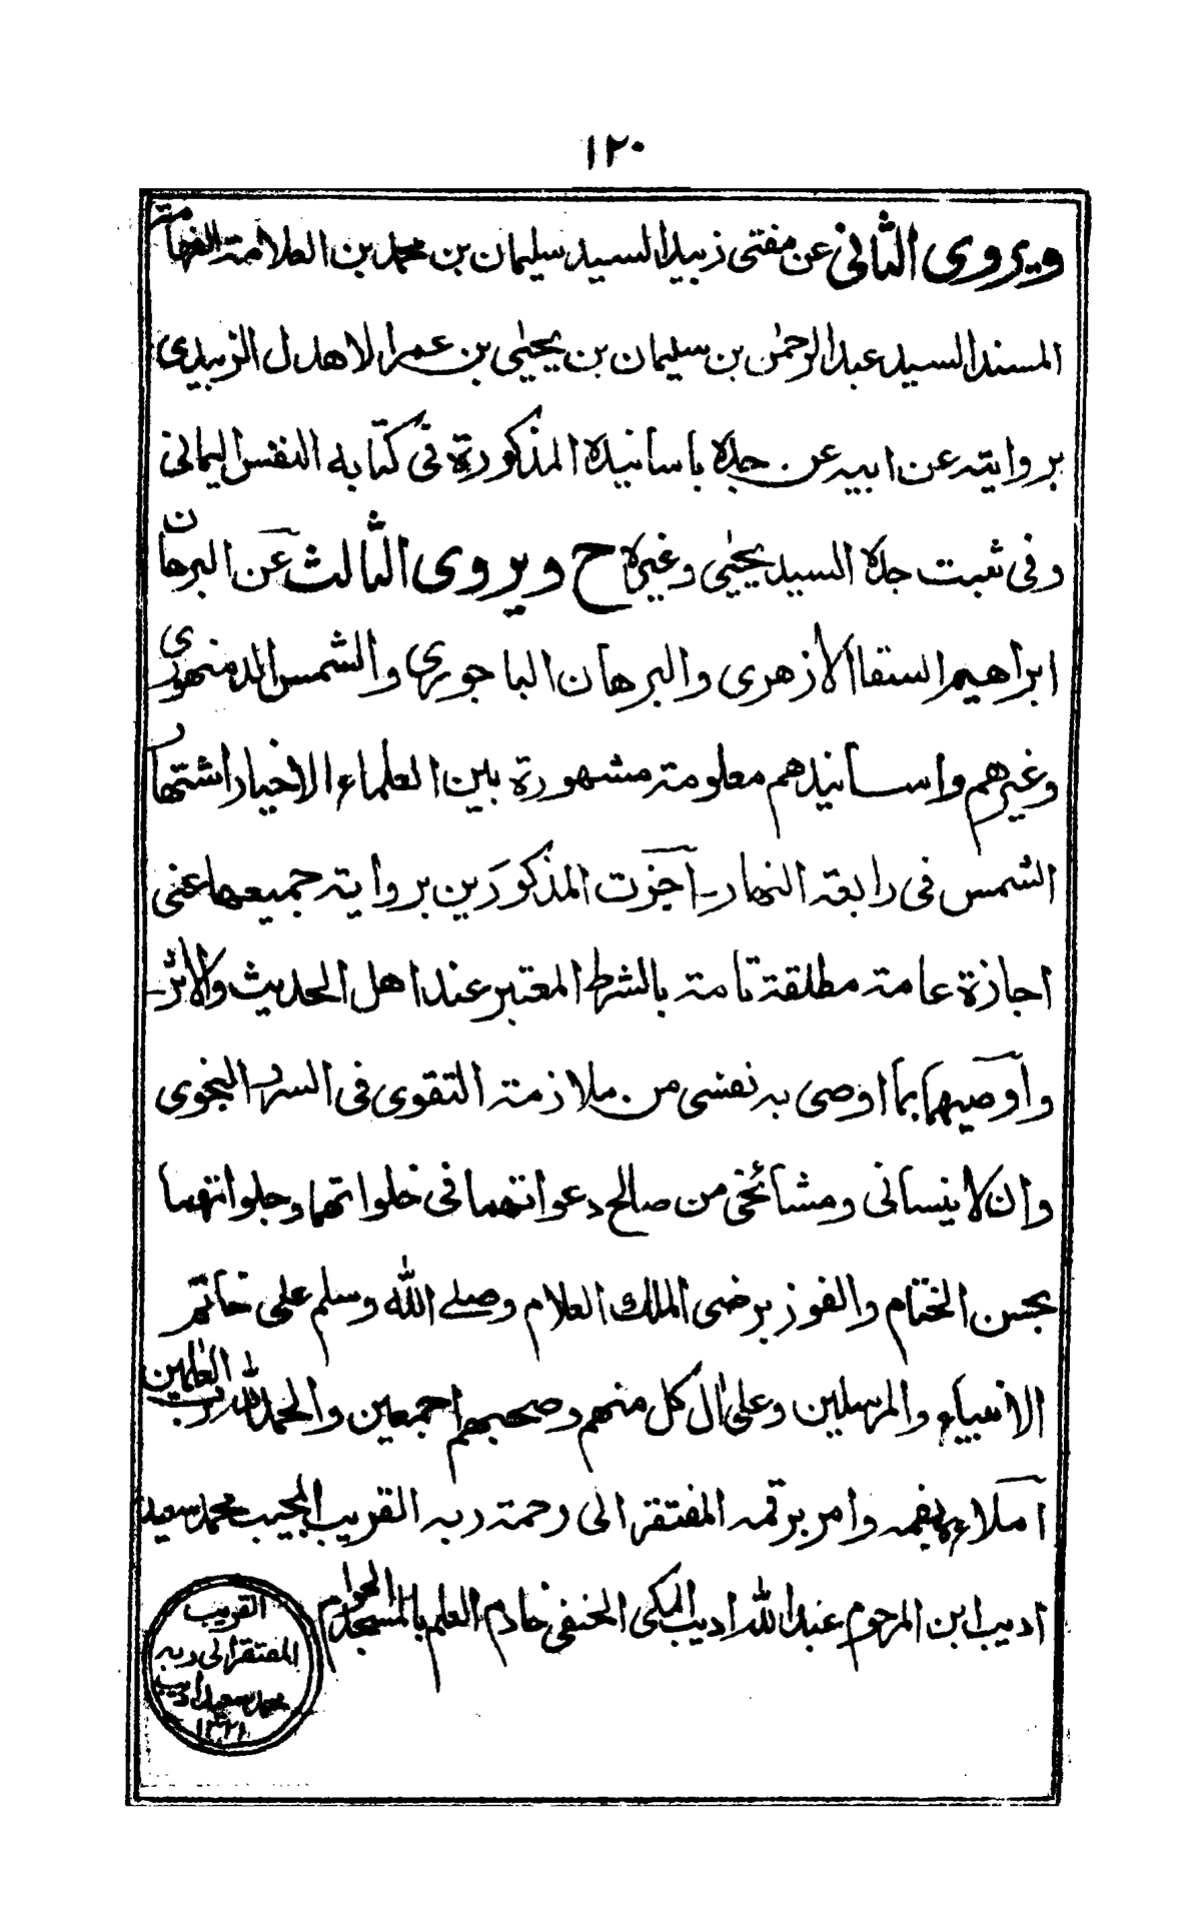 ١٢٠
ويروى الثانى عن مفتى زبيد السيد سليمان بن محمد بن العلامة الفهامة
المسند السيد عبد الرحمٰن بن سليمان بن يحيٰى بن عمر الاهدل الزبيدى
بروايته عن ابيه عن جده باسانيده المذكورة فى كتابه النفس اليمانى
وفى ثبت جده السيد يحيٰى وغيره ح ويروى الثالث عن البرهان
ابراهيم السقا الأزهرى والبرهان الباجورى والشمس الدمنهورى
وغيرهم واسانيدهم معلومة مشهورة بين العلماء الاخيار اشتهار
الشمس فى رابعة النهار أجزت المذكورَين برواية جميعها عنى
اجازة عامة مطلقة تامة بالشرط المعتبر عند اهل الحديث والأثر
وأوصيهما بما اوصى به نفسى من ملازمة التقوى فى السر والنجوى
وان لا ينسانى ومشائخى من صالح دعواتهما فى خلواتهما وجلواتهما
بحسن الختام والفوز برضى الملك العلام وصلے اللّٰه وسلم على خاتم
الانبياء والمرسلين وعلى اٰل كل منهم وصحبهم اجمعين والحمد للّٰه رب العٰلمين
أملاه بفمه وامر برقمه المفتقر الى رحمة ربه القريب المجيب محمد سعيد
اديب ابن المرحوم عبد اللّٰه اديب المكى الحنفى خادم العلم بالمسجد الحرام
القريب
المفتقر الى ربه
محمد سعيد اديب